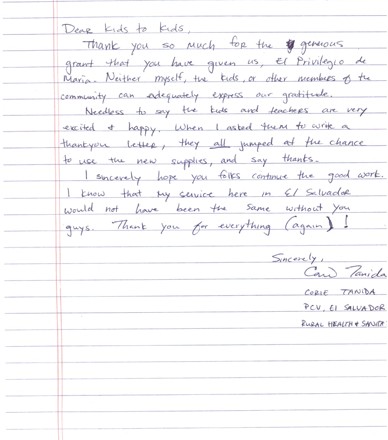 Dear Kids to Kids,
Thank you so much for the generous
grant that you have given us, El Privilegio de
Maria. Neither myself, the kids, or other members of the
community can adequately express our gratitude.
Needless to say the kids and teachers are very
excited & happy. When I asked them to write a
thankyou letter, they all jumped at the chance
to use the new supplies, and say thanks.
I sincerely hope you folks continue the good work.
I know that my service here in El Salvador
would not have been the same without you
guys. Thank you for everything (again)!
Sincerely,
Tanida
CORIE TANIDA
PCV, El SALVADOR
RURAL HEALTH &